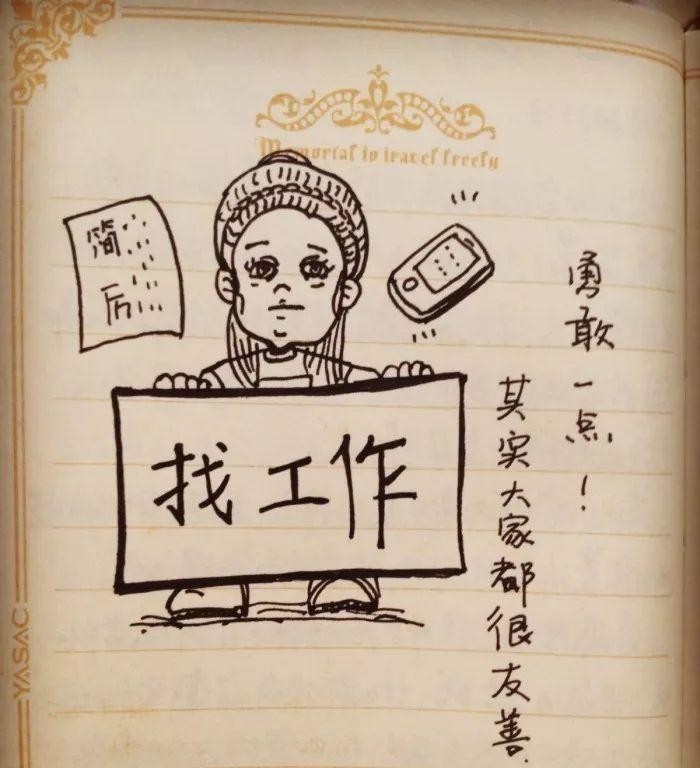 Memorial to travel freely
简
历
找工作
勇敢一点！
其实大家都很友善.
YASAC